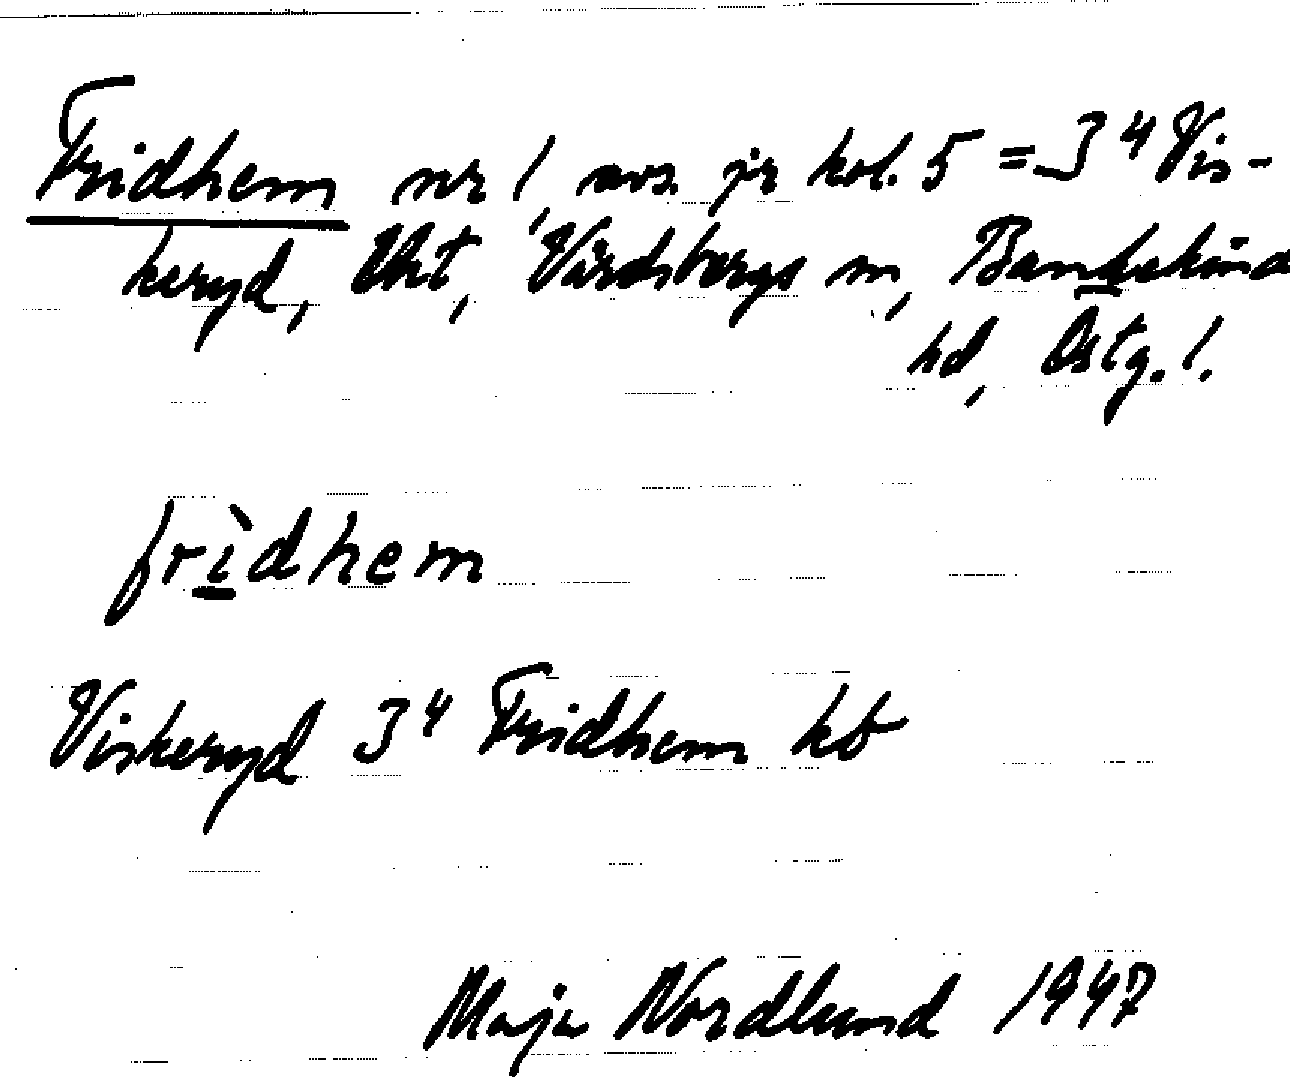 Fridhem nr 1, avs. jr kol. 5 = 3⁴ Vis-
keryd, Vårdsbergs sn, Bankekinds
hd, Östg. l.
frìdhem
Viskeryd 3⁴ Fridhem kb
Maja Nordlund 1947